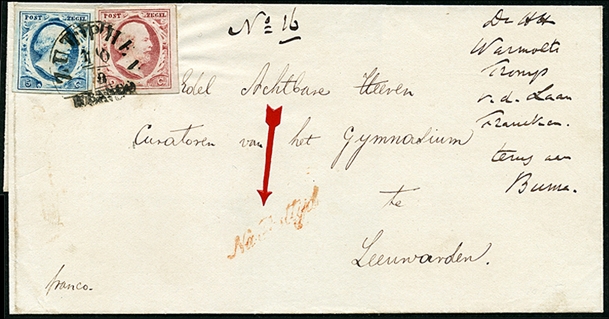 POST ZEGEL POST ZEGEL
No 16
Edel Achtbare Heeren
Curatoren van het Gymnasium
te
Leeuwarden.
franco.
De HH
Warmolts
Tromp
v.d. Laan
Francken.
terug aan
Buma.